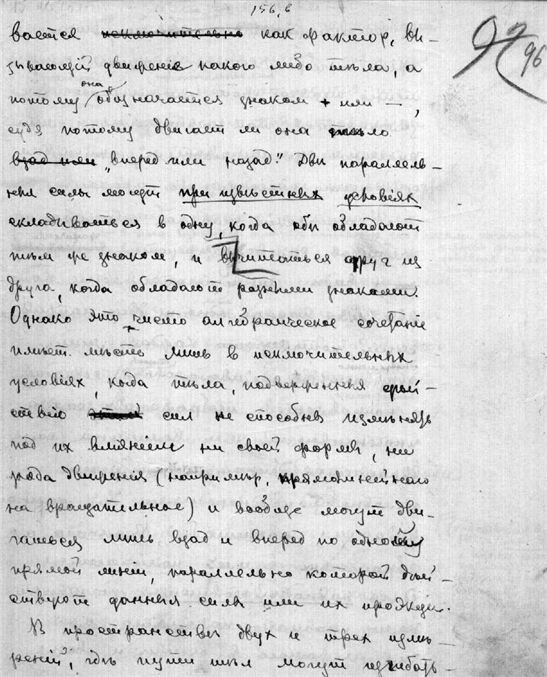 156, 6
97
96
вается исключительно как фактор, вы-
зывающий движенiе какого либо тѣла, а
она
потому обозначается знаком + или —,
судя потому двигает ли она тѣло
взад или „вперед или назад." Двѣ параллель-
ныя силы могут при извѣстных условiях
складываться в одну, когда обѣ обладают
тѣм же знаком, и вычитаться друг из
друга, когда обладают разными знаками.
Однако это чисто алгебраическое сочетанiе
имѣет мѣсто лишь в исключительных
условiях, когда тѣла, подверженныя дѣй-
ствiю сил не способны измѣнять
под их влiянiем ни своей формы, ни
рода движенiя (напримѣр, прямолинейнаго
на вращательное) и вообще могут дви-
гаться лишь взад и вперед по одной
прямой линiи, параллельно которой дѣй-
ствуют данныя силы или их проэкции.
В пространствѣ двух и трех измѣ-
ренiй, гдѣ пути тѣл могут изгибать-